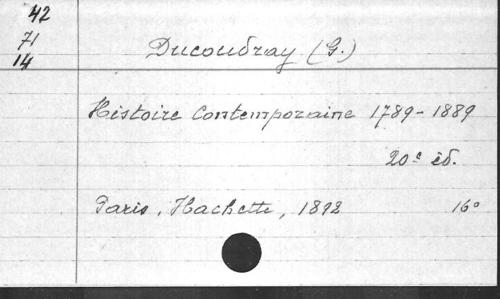 42
71
14
Ducoudray (G.)
Histoire Contemporaine 1789-1889
20e éd.
Paris, Hachette, 1892
16°